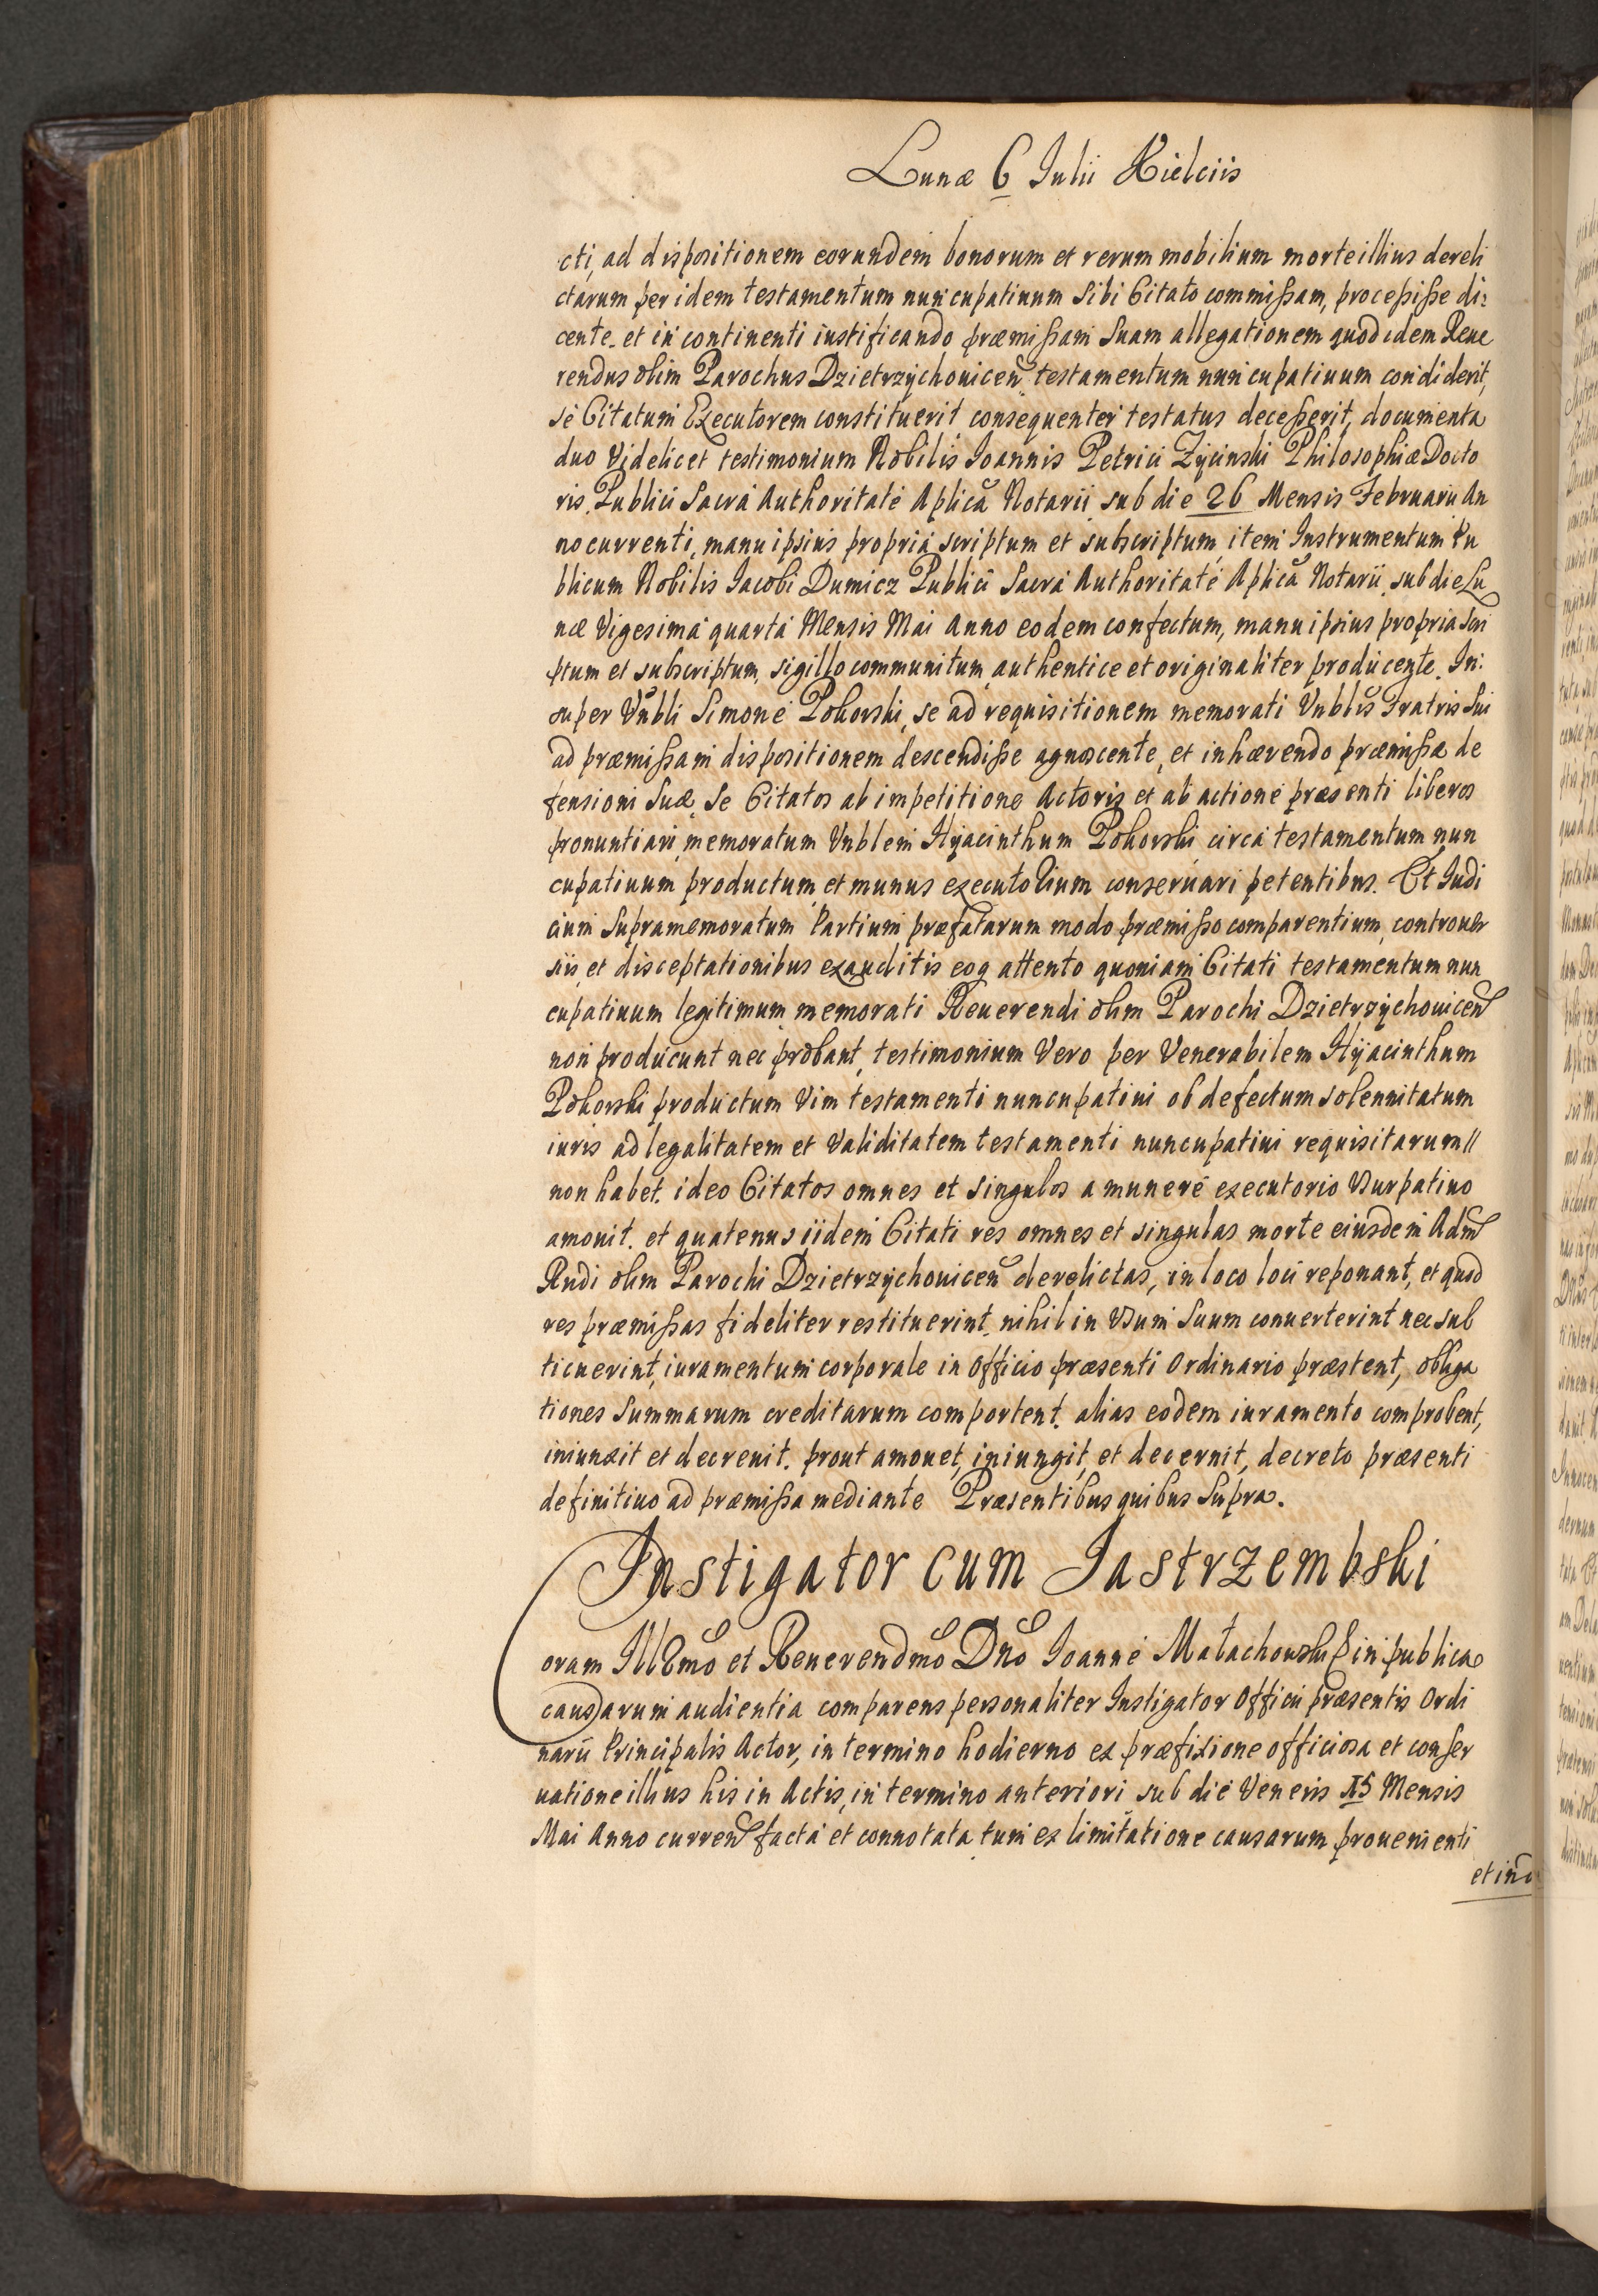 Lunæ 6 Iulii Kielciis
cti, ad dispositionem eorundem bonorum et rerum mobilium morte illius dereli
ctarum per idem testamentum nuncupatiuum sibi Citato commißam, proceßiße di:
cente. et in continenti iustificando præmißam Suam allegationem quod idem Reue
rendus olim Parochus Dzietrzychouicen̄ testamentum nuncupatiuum condiderit,
se Citatum Executorem constituerit consequenter testatus deceßerit, documenta
duo Videlicet testimonium Nobilis Ioannis Petrici Zycinski Philosophiæ Docto
ris. Publici Sacra Authoritate Aplica Notarii sub die 26 Mensis Februarii An
no currenti, manu ipsius propria scriptum et subscriptum, item Instrumentum Pu
blicum Nobilis Iacobi Dumicz Publici Sacra Authoritate Aplica Notarii, sub die Lu
næ Vigesima quarta Mensis Mai Anno eodem confectum, manu ipsius propria scri
ptum et subscriptum, sigillo communitum authentice et originaliter producente. In:
super Vnbli Simone Pokorski, se ad requisitionem memorati Vnblis Fratris Sui
ad præmißam dispositionem descendiße agnoscente, et inhærendo præmißæ de
fensioni Suæ, Se Citatos ab impetitione Actoris et ab actione præsenti liberos
pronuntiari, memoratum Vnblem Hyacinthum Pokorski circa testamentum nun
cupatiuum productum et munus executorium conseruari petentibus. Et Iudi
cium Supramemoratum Partium præfatarum modo præmißo comparentium, controuer
siis et disceptationibus exauditis eoq attento quoniam Citati testamentum nun
cupatiuum legitimum memorati Reuerendi olim Parochi Dzietrzychouicen
non producunt nec probant, testimonium Vero per Venerabilem Hyacinthum
Pokorski productum Vim testamenti nuncupatiui ob defectum solennitatum
iuris ad legalitatem et Validitatem testamenti nuncupatiui requisitarum //
non habet. ideo Citatos omnes et singulos a munere executorio Vsurpatiuo
amouit. et quatenus iidem Citati res omnes et singulas morte eiusdem Adm
Rndi olim Parochi Dzietrzychouicen̄ derelictas, in loco loci reponant, et quod
res præmißas fideliter restituerint, nihil in Vsum Suum conuerterint nec sub
ticuerint, iuramentum corporale in Officio præsenti Ordinario præstent, obliga
tiones Summarum creditarum comportent. alias eodem iuramento comprobent,
iniunxit et decreuit. prout amouet, iniungit, et decernit, decreto præsenti
definitiuo ad præmißa mediante Præsentibus quibus Supra.
Instigator cum Iastrzembski
Coram Illmo et Reuerendmo Dno Ioanne Małachowski in publica
causarum audientia comparens personaliter Instigator Officii præsentis Ordi
narii Principalis Actor, in termino hodierno ex præfixione officiosa et conser
uatione illius his in Actis, in termino anteriori sub die Veneris 15 Mensis
Mai Anno curren facta et connotata tum ex limitatione causarum prouenienti
et in